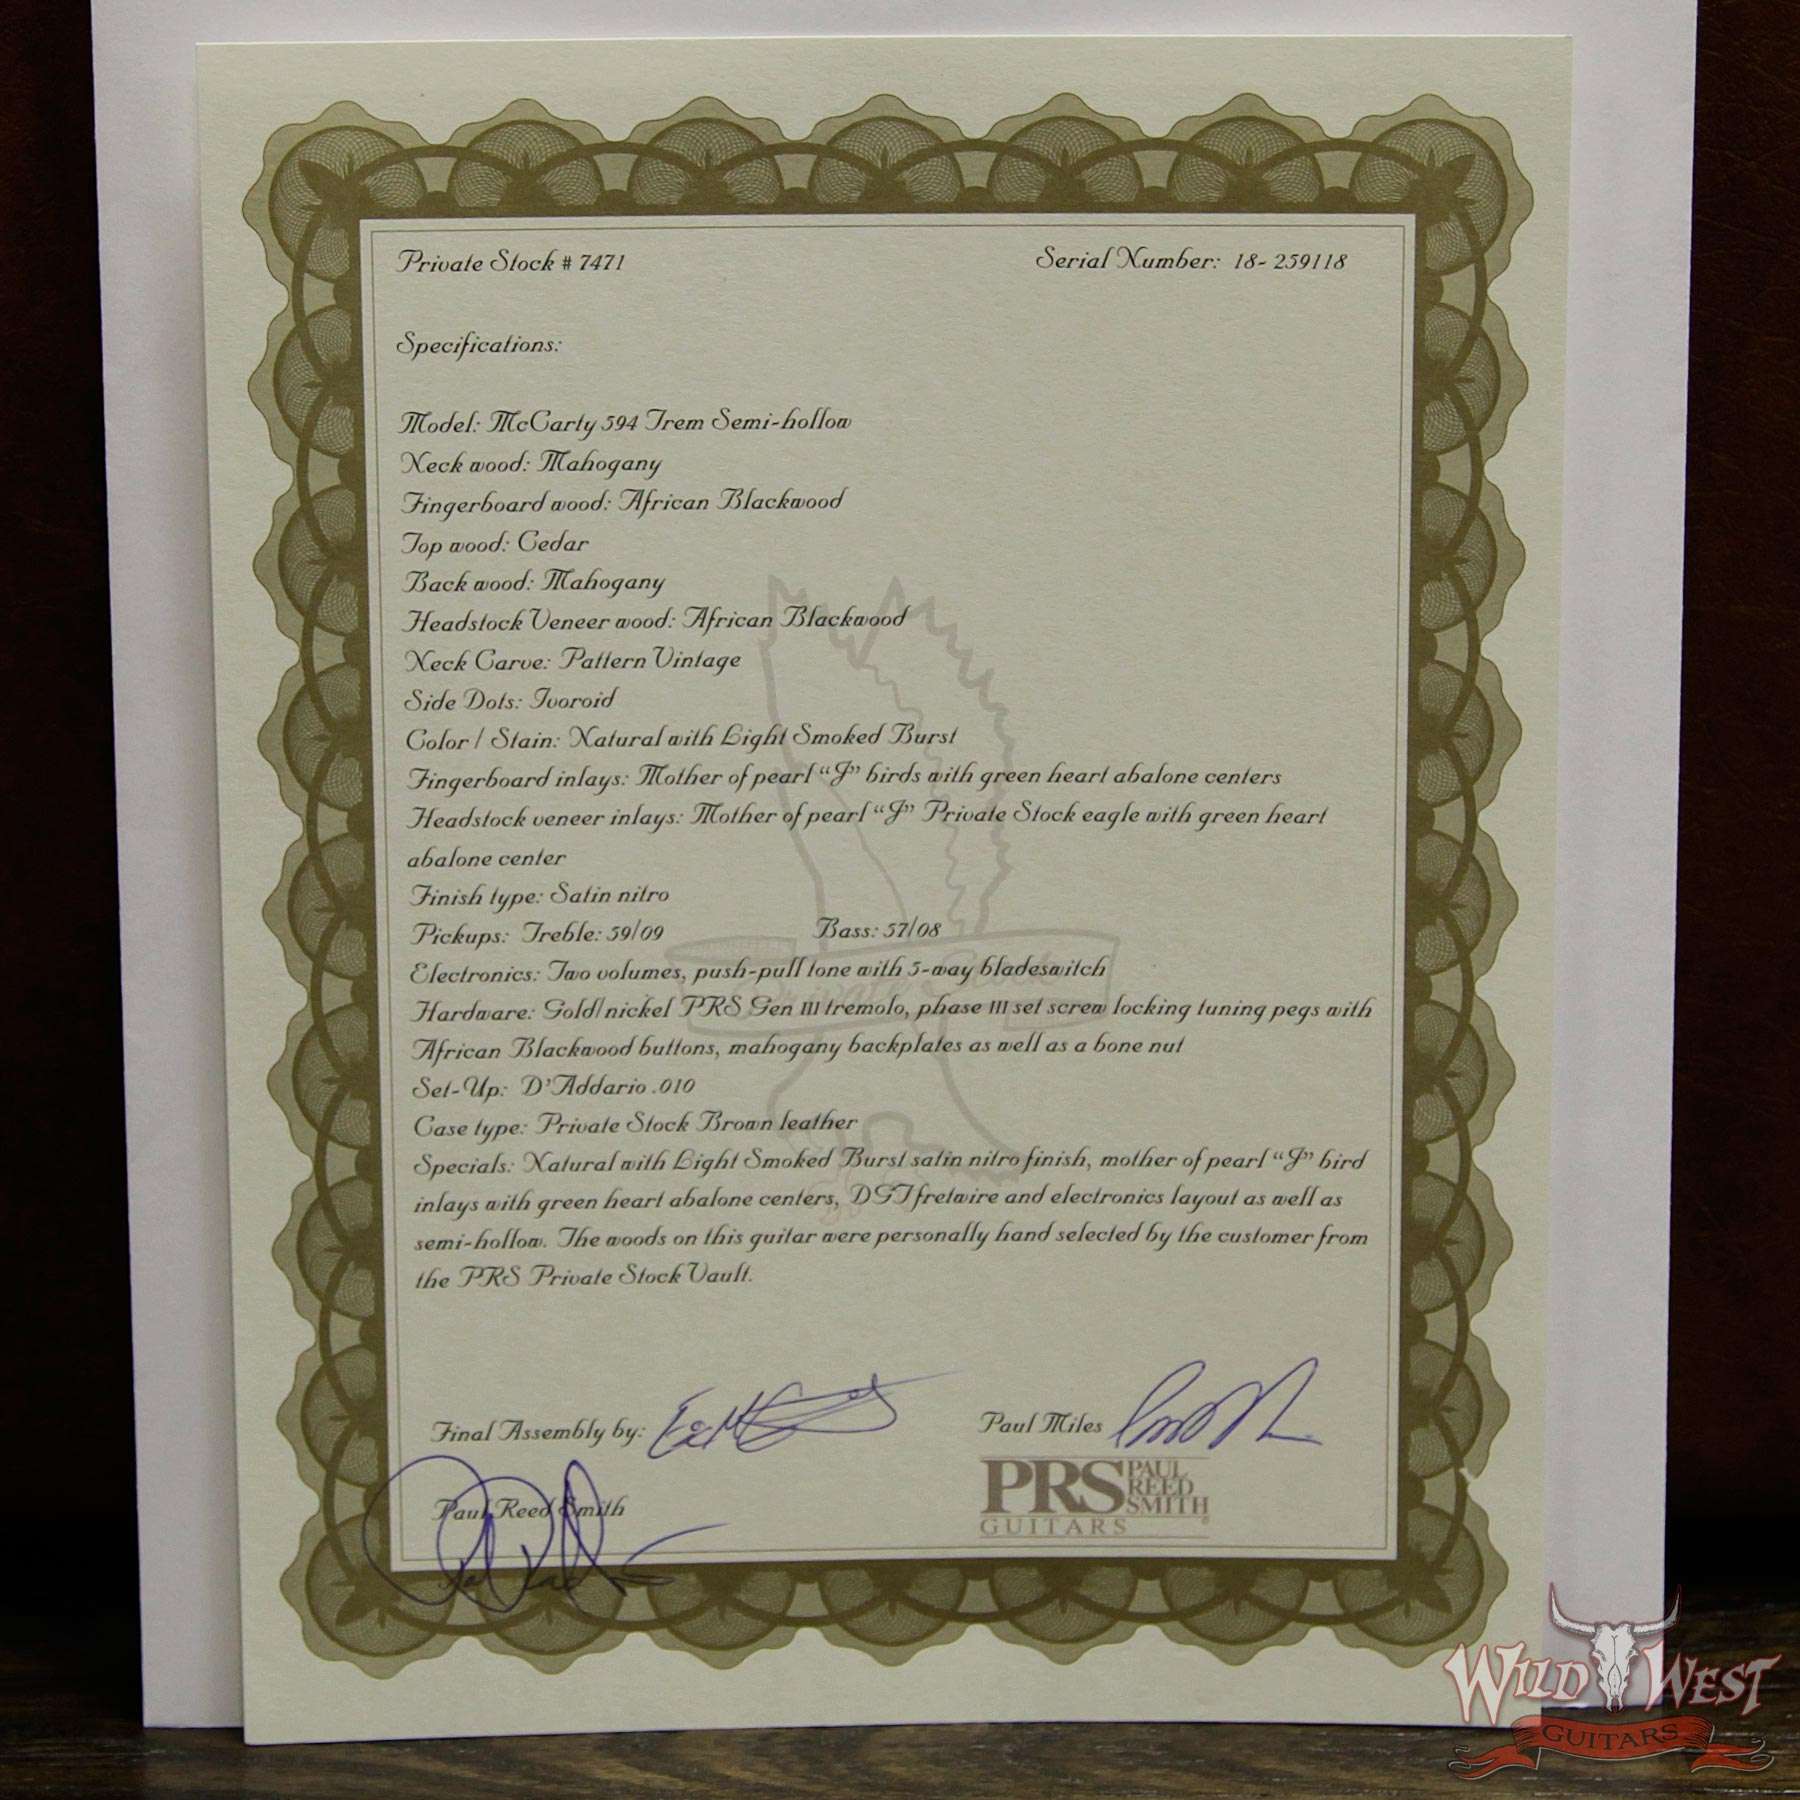 Private Stock # 7471 Serial Number: 18- 259118
Specifications:
Model: McCarty 594 Trem Semi-hollow
Neck wood: Mahogany
Fingerboard wood: African Blackwood
Top wood: Cedar
Back wood: Mahogany
Headstock Veneer wood: African Blackwood
Neck Carve: Pattern Vintage
Side Dots: Ivoroid
Color / Stain: Natural with Light Smoked Burst
Fingerboard inlays: Mother of pearl “J” birds with green heart abalone centers
Headstock veneer inlays: Mother of pearl “J” Private Stock eagle with green heart
abalone center
Finish type: Satin nitro
Pickups: Treble: 59/09 Bass: 57/08
Electronics: Two volumes, push-pull tone with 3-way bladeswitch
Hardware: Gold/nickel PRS Gen III tremolo, phase III set screw locking tuning pegs with
African Blackwood buttons, mahogany backplates as well as a bone nut
Set-Up: D'Addario .010
Case type: Private Stock Brown leather
Specials: Natural with Light Smoked Burst satin nitro finish, mother of pearl “J” bird
inlays with green heart abalone centers, DGT fretwire and electronics layout as well as
semi-hollow. The woods on this guitar were personally hand selected by the customer from
the PRS Private Stock Vault.
Final Assembly by:
Paul Miles
Paul Reed Smith
PRS PAUL REED SMITH
GUITARS
WILD WEST
GUITARS